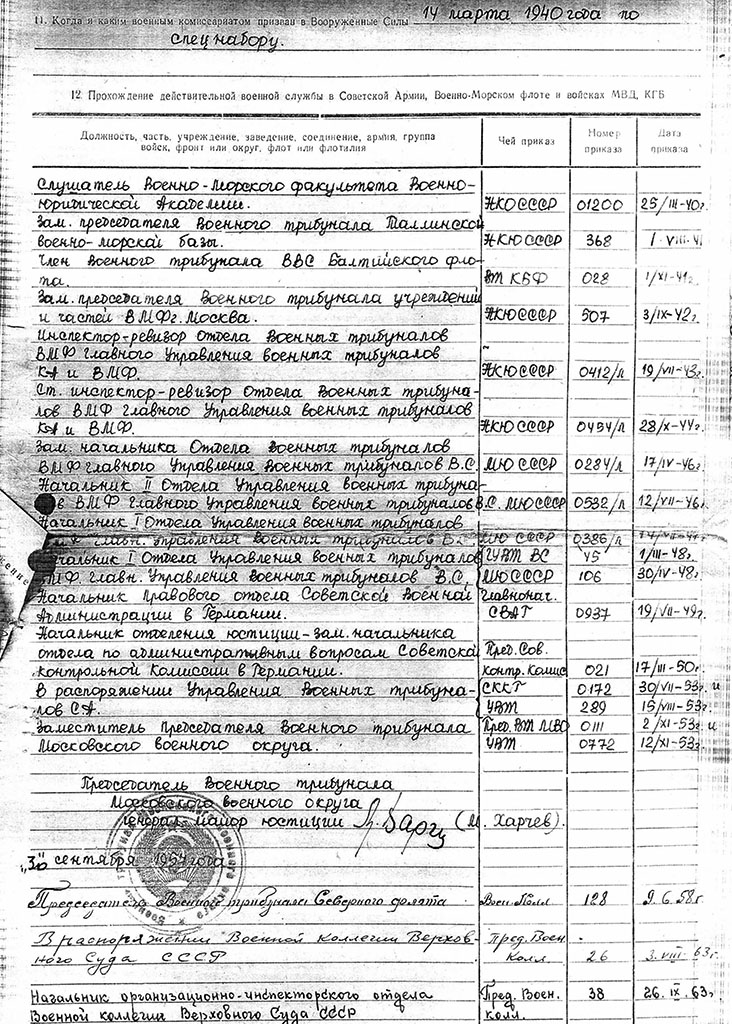 11. Когда и каким военным комиссариатом призван в Вооруженные Силы 14 марта 1940 года по
спецнабору.
12. Прохождение действительной военной службы в Советской Армии, Военно-Морском флоте и войсках МВД, КГБ
Должность, часть, учреждение, заведение, соединение, армия, группа войск, фронт или округ, флот или флотилия | Чей приказ | Номер приказа | Дата приказа
Слушатель Военно-Морского факультета Военно-
юридической Академии. НКОСССР 01200 25/III-40г.
Зам. председателя Военного трибунала Таллинской
военно-морской база. НКЮСССР 368 1 VIII-41
Член Военного трибунала ВВС Балтийского фло-
та. ВТ КБФ 028 1/XI-41г.
Зам. председателя Военного трибунала учреждений
и частей ВМФ г. Москва. НКЮСССР 507 3/IX-42г.
Инспектор-ревизор отдела Военных трибуналов
ВМФ Главного Управления военных трибуналов
КА и ВМФ. НКЮСССР 0412/л 19/VII-43г.
Ст. инспектор-ревизор Отдела Военных трибуна-
лов ВМФ Главного Управления военных трибуналов
КА и ВМФ. НКЮ СССР 0454/л 28/X-44г.
Зам. начальника Отдела Военных трибуналов
ВМФ Главного Управления Военных трибуналов В.С. МЮ СССР 0284/л 17/IV-46г.
Начальник II Отдела Управления военных трибуна-
в ВМФ Главного Управления военных трибуналов В.С. МЮСССР 0532/л 12/VII-46г.
Начальник I Отдела Управления военных трибуналов
Главн. Управления Военных трибуналов МЮ СССР 0386/л
чальник I Отдела Управления военных трибуналов ГУВТ ВС 45 1/III-48г.
ВМФ. Главн. Управления Военных трибуналов В.С. МЮСССР 106 30/IV-48г.
Начальник Правового отдела Советской Военной Главнонач.
Администрации в Германии. СВАГ 0937 19/VII-49г.
Начальник отделения юстиции-зам. начальника
отдела по административным вопросам Советской Пред. Сов.
контрольной Комиссии в Германии. контр. Комис 021 17/III-50г.
В распоряжении Управления Военных трибуна- СККГ 0172 30/VII-53г. и
лов СА. УВТ 289 15/VIII-53г.
Заместитель Председателя Военного трибунала Пред. ВТ МВО 0111 2/XI-53г. и
Московского военного округа. УВТ 0772 12/XI-53г.
Председатель Военного трибунала
Московского военного округа
Генерал-майор юстиции (М. Харчев).
"3" сентября 1954 года
Председатель Военного трибунала Северного флота Воен. Колл 128 9.6.58г
В распоряжении Военной коллегии Верхов- Пред. Воен.
ного Суда СССР Колл. 26 3.VIII-63г.
Начальник организационно-инспекторского отдела Пред. Воен. 38 26.IX.63г.
Военной коллегии Верховного Суда СССР колл.